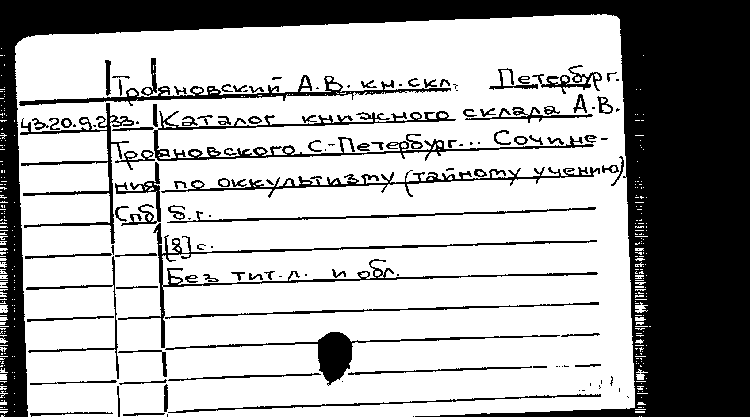 Трояновский, А.В. кн. скл. Петербург.
43.20.9.233. Каталог книжного склада А.В.
Трояновского. С.-Петербург... Сочине-
ния по оккультизму (тайному учению).
Спб, б.г.
[8] с.
Без тит. л. и обл.